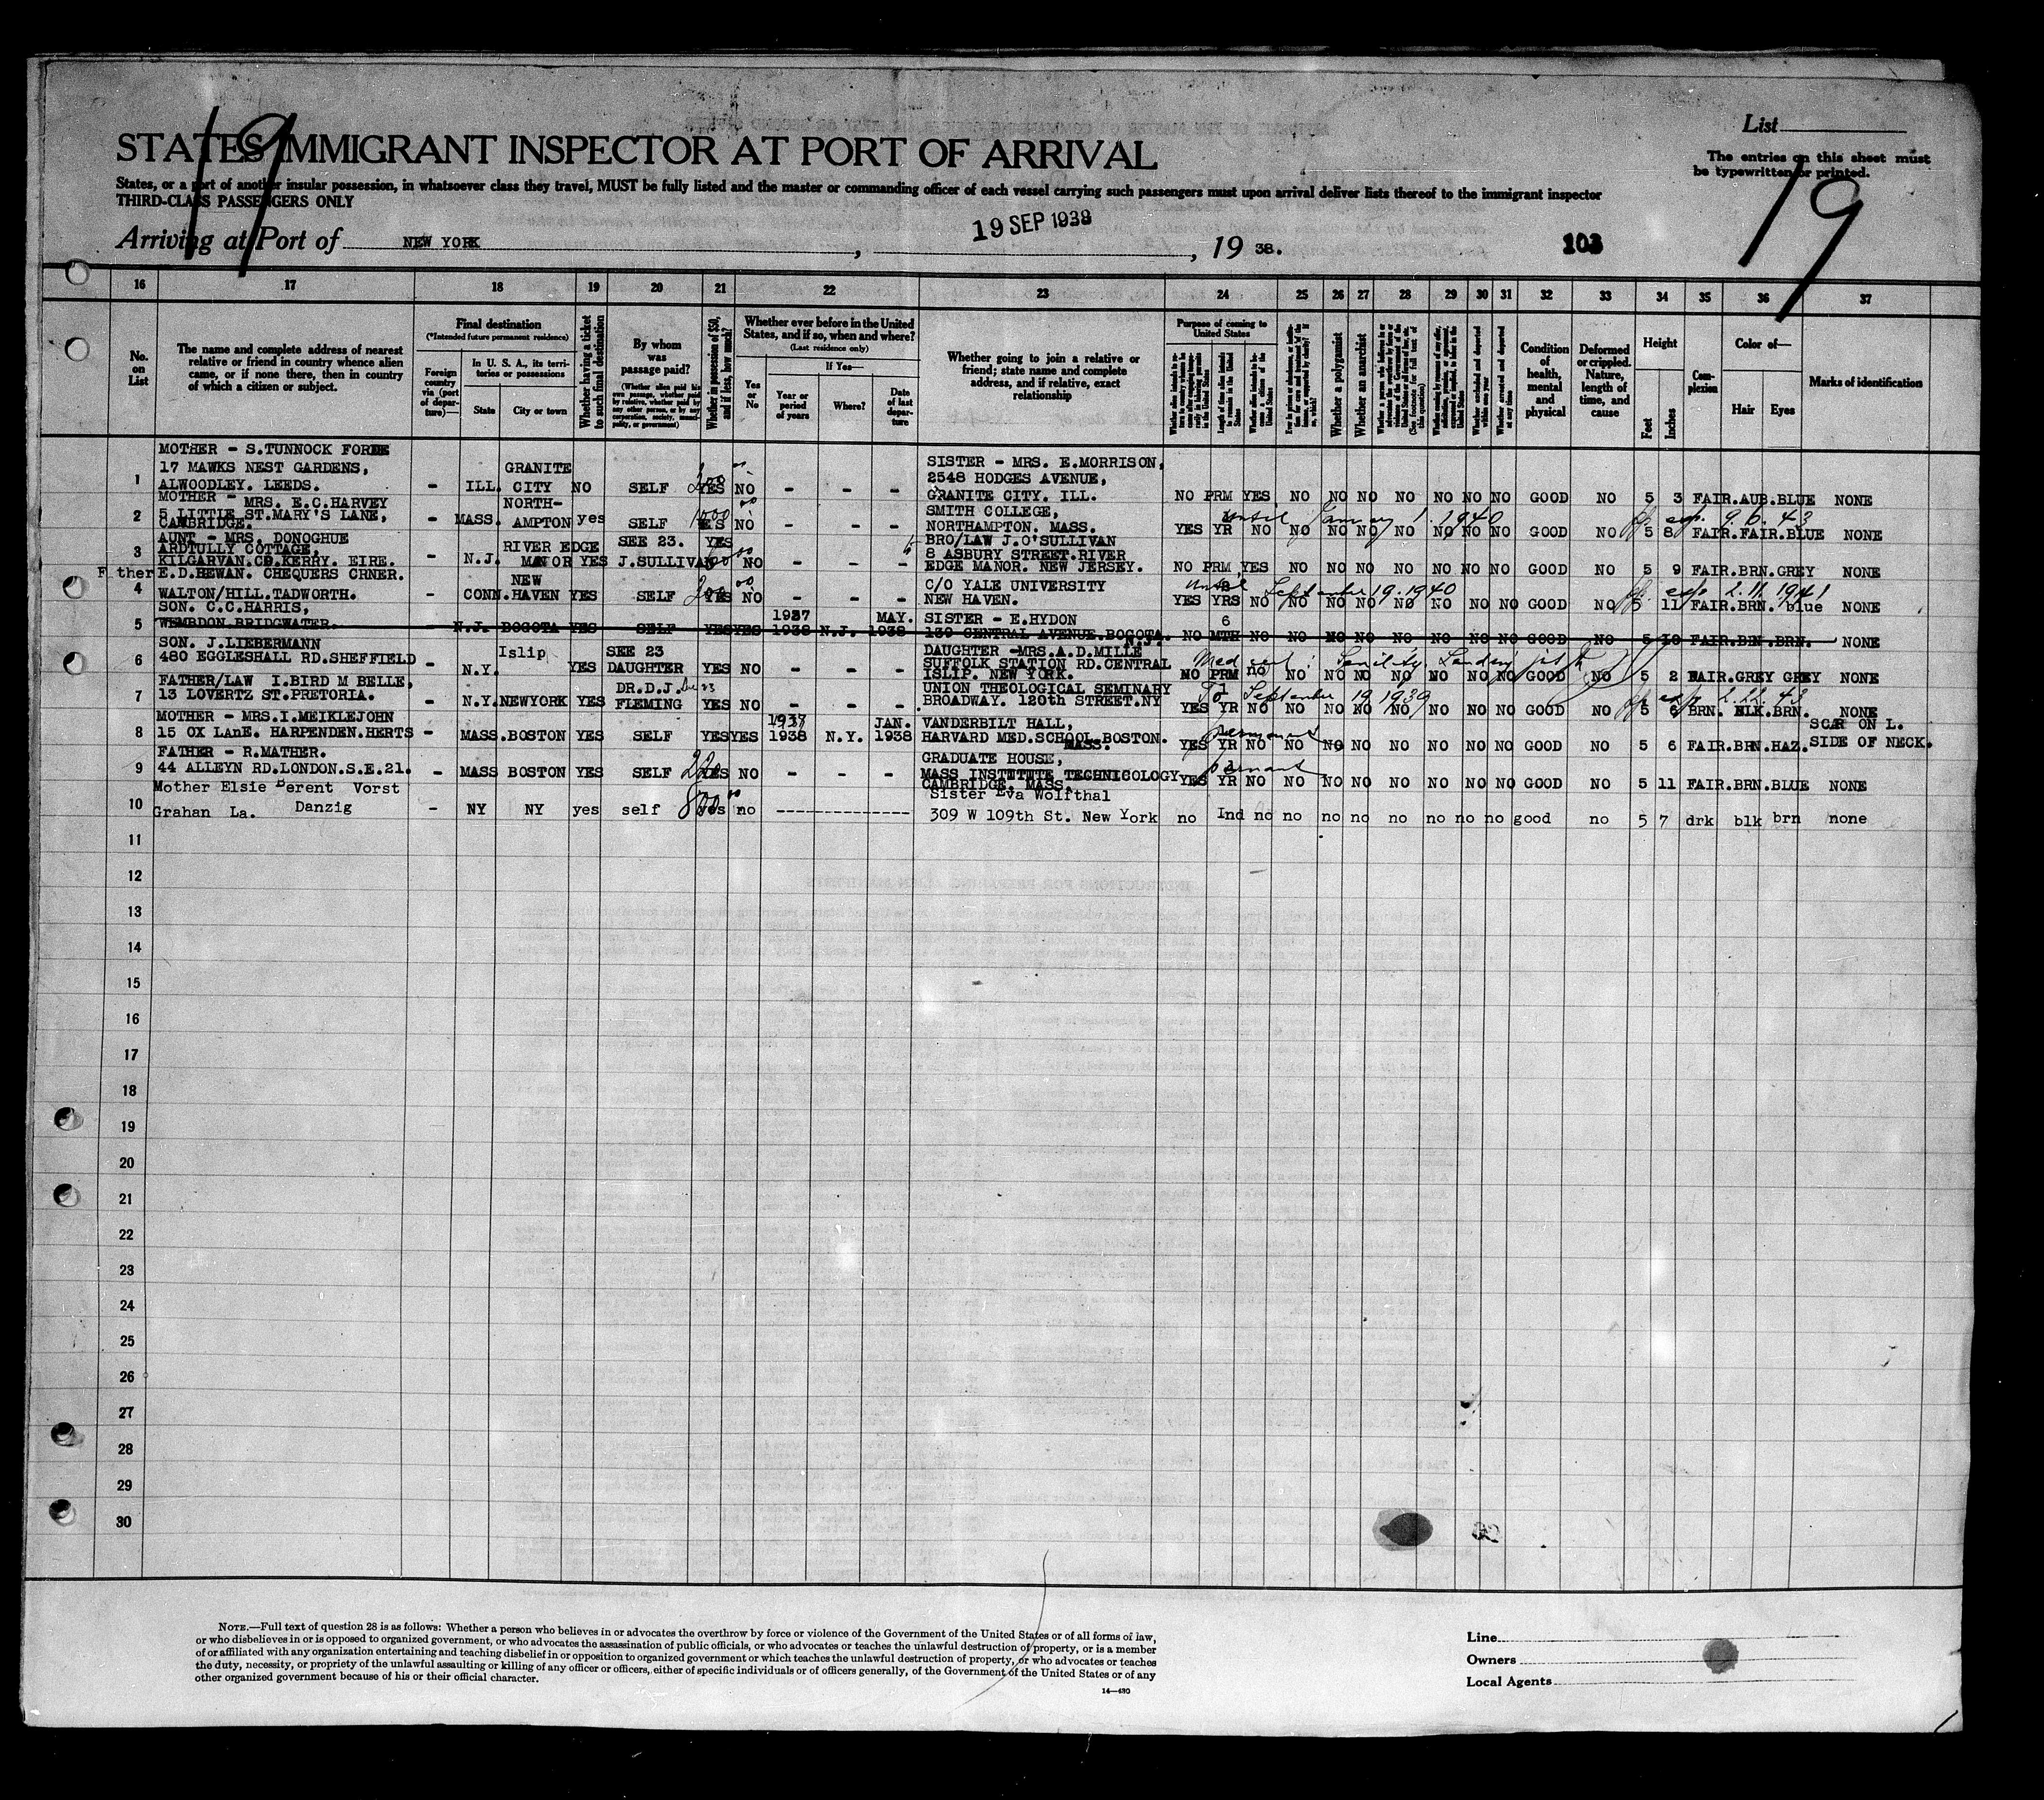 19
STATES IMMIGRANT INSPECTOR AT PORT OF ARRIVAL
List
The entries on this sheet must
be typewritten or printed.
19
States, or a port of another insular possession, in whatsoever class they travel, MUST be fully listed and the master or commanding officer of each vessel carrying such passengers must upon arrival deliver lists thereof to the immigrant inspector
THIRD-CLASS PASSENGERS ONLY
Arriving at Port of NEW YORK, 19 SEP 1938, 19 38. 103
16 17 18 19 20 21 22 23 24 25 26 27 28 29 30 31 32 33 34 35 36 37
No. on List
The name and complete address of nearest relative or friend in country whence alien came, or if none there, then in country of which a citizen or subject.
Final destination
(*Intended future permanent residence)
Foreign country via (port of departure)—
In U. S. A., its territories or possessions
State
City or town
Whether having a ticket to such final destination
By whom was passage paid?
(Whether alien paid his own passage, whether paid by relative, whether paid by any other person, or by any corporation, society, municipality, or government)
Whether in possession of $50, and if less, how much?
Whether ever before in the United States, and if so, when and where?
(Last residence only)
Yes or No
If Yes—
Year or period of years
Where?
Date of last departure
Whether going to join a relative or friend; state name and complete address, and if relative, exact relationship
Purpose of coming to United States
Length of time alien intends to remain in the United States
Whether a polygamist
Whether an anarchist
(See footnote for full text of this question)
Whether arrested and deported at any time
Condition of health, mental and physical
Deformed or crippled. Nature, length of time, and cause
Height
Feet
Inches
Complexion
Color of—
Hair
Eyes
Marks of identification
MOTHER - S.TUNNOCK FORDE
17 MAWKS NEST GARDENS, GRANITE SISTER - MRS. E.MORRISON,
2548 HODGES AVENUE,
1 ALWOODLEY. LEEDS. - ILL. CITY NO SELF 200 YES NO - - - GRANITE CITY. ILL. NO PRM YES NO NO NO NO NO NO NO GOOD NO 5 3 FAIR.AUB.BLUE NONE
MOTHER - MRS. E.C.HARVEY NORTH- SMITH COLLEGE, until January 1. 1940 exp. 9. 6. 43
2 5 LITTLE ST.MARY'S LANE, - MASS. AMPTON yes SELF 1000 YES NO - - - NORTHAMPTON. MASS. YES YR NO NO NO NO NO NO NO NO GOOD NO 5 8 FAIR.FAIR.BLUE NONE
CAMBRIDGE.
AUNT - MRS. DONOGHUE SEE 23. YES BRO/LAW J.O'SULLIVAN
3 ARDTULLY COTTAGE, RIVER EDGE 8 ASBURY STREET.RIVER
KILGARVAN.CO.KERRY. EIRE. - N.J. MANOR YES J.SULLIVAN NO - - - EDGE MANOR. NEW JERSEY. NO PRM YES NO NO NO NO NO NO NO GOOD NO 5 9 FAIR.BRN.GREY NONE
F ther E.D.BEWAN. CHEQUERS CRNER. NEW C/O YALE UNIVERSITY until September 19.1940 exp 2. 11. 1941
4 WALTON/HILL.TADWORTH. - CONN.HAVEN YES SELF 200 YES NO - - - NEW HAVEN. YES YRS NO NO NO NO NO NO NO NO GOOD NO 5 11 FAIR.BRN. blue NONE
SON. C.C.HARRIS, 1937 MAY. SISTER - E.HYDON 6
5 WEMBDON.BRIDGWATER. N.J. BOGOTA YES SELF YES YES 1938 N.J. 1938 139 CENTRAL AVENUE.BOGOTA. N.J. NO MTH NO NO NO NO NO NO NO NO GOOD NO 5 10 FAIR.BRN.BRN. NONE
SON. J.LIEBERMANN Islip SEE 23 DAUGHTER -MRS.A.D.MILLE Med cert: Senility.
6 480 EGGLESHALL RD.SHEFFIELD - N.Y. YES DAUGHTER YES NO - - - SUFFOLK STATION RD.CENTRAL ISLIP. NEW YORK. NO PRM no NO NO NO NO NO NO NO GOOD NO 5 2 FAIR.GREY GREY NONE
FATHER/LAW I.BIRD M BELLE, DR.D.J. See 23 UNION THEOLOGICAL SEMINARY To September 19 1939 exp 2. 22. 43
7 13 LOVERTZ ST.PRETORIA. - N.Y.NEWYORK YES FLEMING YES NO - - - BROADWAY. 120th STREET.NY YES YR NO NO NO NO NO NO NO NO GOOD NO 5 6 BRN. BLK.BRN. NONE
MOTHER - MRS.I.MEIKLEJOHN 1937 JAN. VANDERBILT HALL, permanent SCAR ON L.
8 15 OX LAnE. HARPENDEN.HERTS - MASS.BOSTON YES SELF YES YES 1938 N.Y. 1938 HARVARD MED.SCHOOL.BOSTON. MASS. YES YR NO NO NO NO NO NO NO NO GOOD NO 5 6 FAIR.BRN.HAZ. SIDE OF NECK.
FATHER - R.MATHER. GRADUATE HOUSE,
9 44 ALLEYN RD.LONDON.S.E.21. - MASS BOSTON YES SELF 220 YES NO - - - MASS INSTITUTE TECHNICOLOGY CAMBRIDGE. MASS. YES YR NO NO NO NO NO NO NO NO GOOD NO 5 11 FAIR.BRN.BLUE NONE
Mother Elsie Berent Vorst Sister Eva Wolfthal
10 Grahan La. Danzig - NY NY yes self 800 yes no -------------- 309 W 109th St. New York no Ind no no no no no no no no good no 5 7 drk blk brn none
11
12
13
14
15
16
17
18
19
20
21
22
23
24
25
26
27
28
29
30
NOTE.—Full text of question 28 is as follows: Whether a person who believes in or advocates the overthrow by force or violence of the Government of the United States or of all forms of law,
or who disbelieves in or is opposed to organized government, or who advocates the assassination of public officials, or who advocates or teaches the unlawful destruction of property, or is a member
of or affiliated with any organization entertaining and teaching disbelief in or opposition to organized government or which teaches the unlawful destruction of property, or who advocates or teaches
the duty, necessity, or propriety of the unlawful assaulting or killing of any officer or officers, either of specific individuals or of officers generally, of the Government of the United States or of any
other organized government because of his or their official character.
14—430
Line
Owners
Local Agents